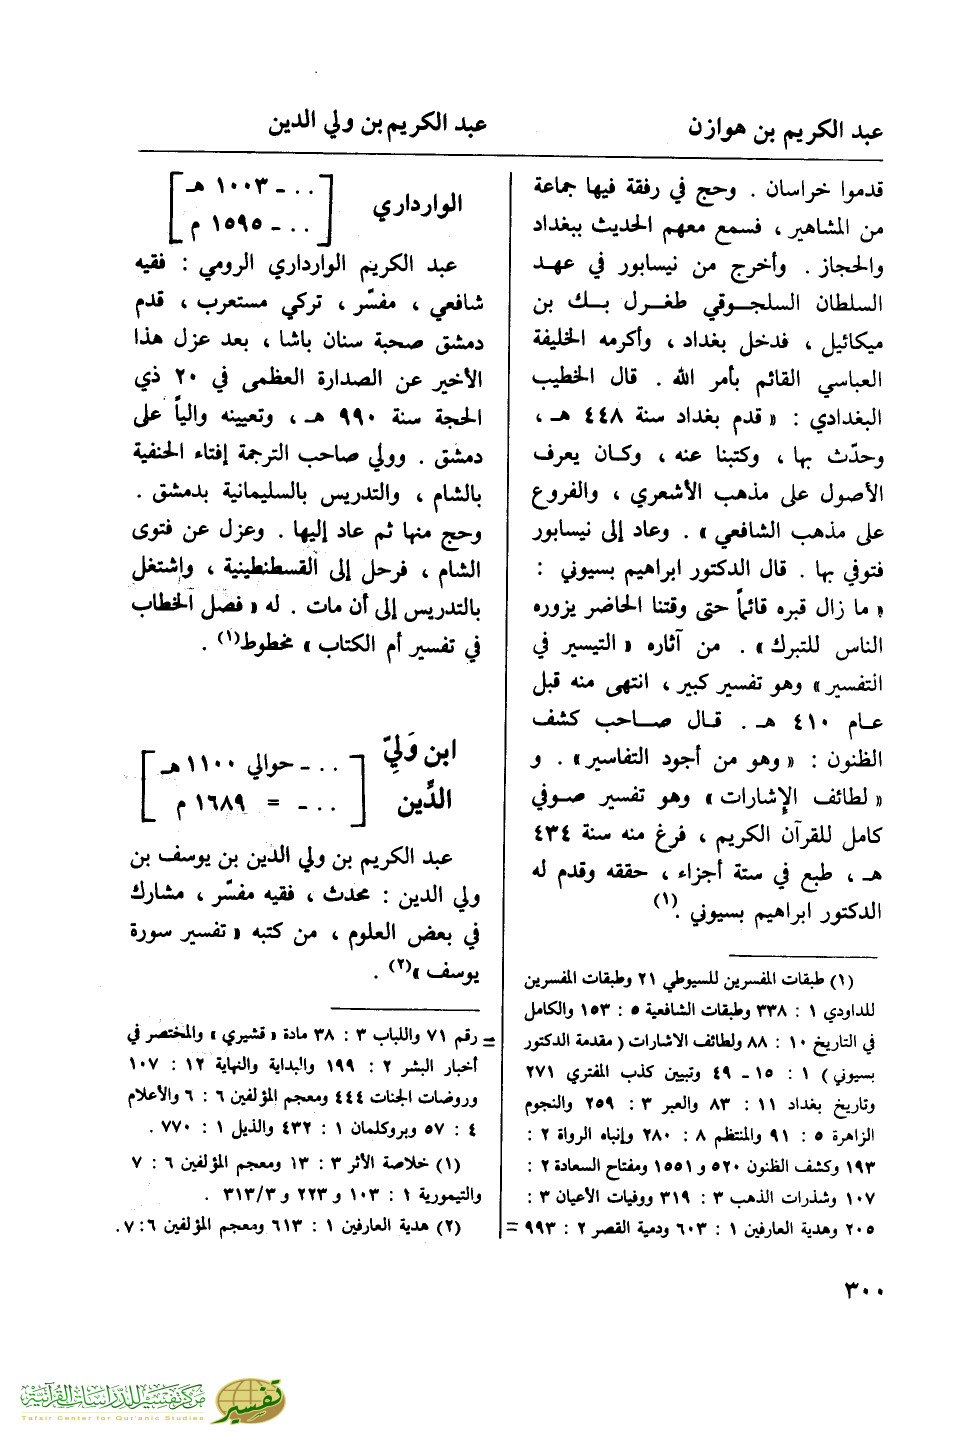 عبد الكريم بن هوازن
عبد الكريم بن ولي الدين
قدموا خراسان . وحج في رفقة فيها جماعة
من المشاهير ، فسمع معهم الحديث ببغداد
والحجاز . وأخرج من نيسابور في عهد
السلطان السلجوقي طغرل بك بن
ميكائيل ، فدخل بغداد ، وأكرمه الخليفة
العباسي القائم بأمر الله . قال الخطيب
البغدادي : « قدم بغداد سنة ٤٤٨ هـ ،
وحدّث بها ، وكتبنا عنه ، وكان يعرف
الأصول على مذهب الأشعري ، والفروع
على مذهب الشافعي » . وعاد إلى نيسابور
فتوفي بها . قال الدكتور ابراهيم بسيوني :
« ما زال قبره قائماً حتى وقتنا الحاضر يزوره
الناس للتبرك » . من آثاره « التيسير في
التفسير » وهو تفسير كبير ، انتهى منه قبل
عام ٤١٠ هـ . قال صاحب كشف
الظنون : « وهو من أجود التفاسير » . و
« لطائف الإشارات » وهو تفسير صوفي
كامل للقرآن الكريم ، فرغ منه سنة ٤٣٤
هـ ، طبع في ستة أجزاء ، حققه وقدم له
الدكتور ابراهيم بسيوني .(١)
(١) طبقات المفسرين للسيوطي ٢١ وطبقات المفسرين
للداودي ١ : ٣٣٨ وطبقات الشافعية ٥ : ١٥٣ والكامل
في التاريخ ١٠ : ٨٨ ولطائف الاشارات ( مقدمة الدكتور
بسيوني ) ١ : ١٥ - ٤٩ وتبيين كذب المفتري ٢٧١
وتاريخ بغداد ١١ : ٨٣ والعبر ٣ : ٢٥٩ والنجوم
الزاهرة ٥ : ٩١ والمنتظم ٨ : ٢٨٠ وإنباه الرواة ٢ :
١٩٣ وكشف الظنون ٥٢٠ و ١٥٥١ ومفتاح السعادة ٢ :
١٠٧ وشذرات الذهب ٣ : ٣١٩ ووفيات الأعيان ٣ :
٢٠٥ وهدية العارفين ١ : ٦٠٣ ودمية القصر ٢ : ٩٩٣ =
الوارداري
[ . . . - ١٠٠٣ هـ
. . . - ١٥٩٥ م ]
عبد الكريم الوارداري الرومي : فقيه
شافعي ، مفسّر ، تركي مستعرب ، قدم
دمشق صحبة سنان باشا ، بعد عزل هذا
الأخير عن الصدارة العظمى في ٢٠ ذي
الحجة سنة ٩٩٠ هـ ، وتعيينه والياً على
دمشق . وولي صاحب الترجمة إفتاء الحنفية
بالشام ، والتدريس بالسليمانية بدمشق .
وحج منها ثم عاد إليها . وعزل عن فتوى
الشام ، فرحل إلى القسطنطينية ، واشتغل
بالتدريس إلى أن مات . له « فصل الخطاب
في تفسير أم الكتاب » مخطوط(١) .
ابن وَلِيّ
الدِّين
[ . . . - حوالي ١١٠٠ هـ
. . . - = ١٦٨٩ م ]
عبد الكريم بن ولي الدين بن يوسف بن
ولي الدين : محدث ، فقيه مفسّر ، مشارك
في بعض العلوم ، من كتبه « تفسير سورة
يوسف »(٢) .
= رقم ٧١ واللباب ٣ : ٣٨ مادة « قشيري » والمختصر في
أخبار البشر ٢ : ١٩٩ والبداية والنهاية ١٢ : ١٠٧
وروضات الجنات ٤٤٤ ومعجم المؤلفين ٦ : ٦ والأعلام
٤ : ٥٧ وبروكلمان ١ : ٤٣٢ والذيل ١ : ٧٧٠ .
(١) خلاصة الأثر ٣ : ١٣ ومعجم المؤلفين ٦ : ٧
والتيمورية ١ : ١٠٣ و ٢٢٣ و ٣١٣/٣ .
(٢) هدية العارفين ١ : ٦١٣ ومعجم المؤلفين ٦ : ٧.
٣٠٠
مركز تفسير للدراسات القرآنية
Tafsir Center for Qur'anic Studies
تفسير